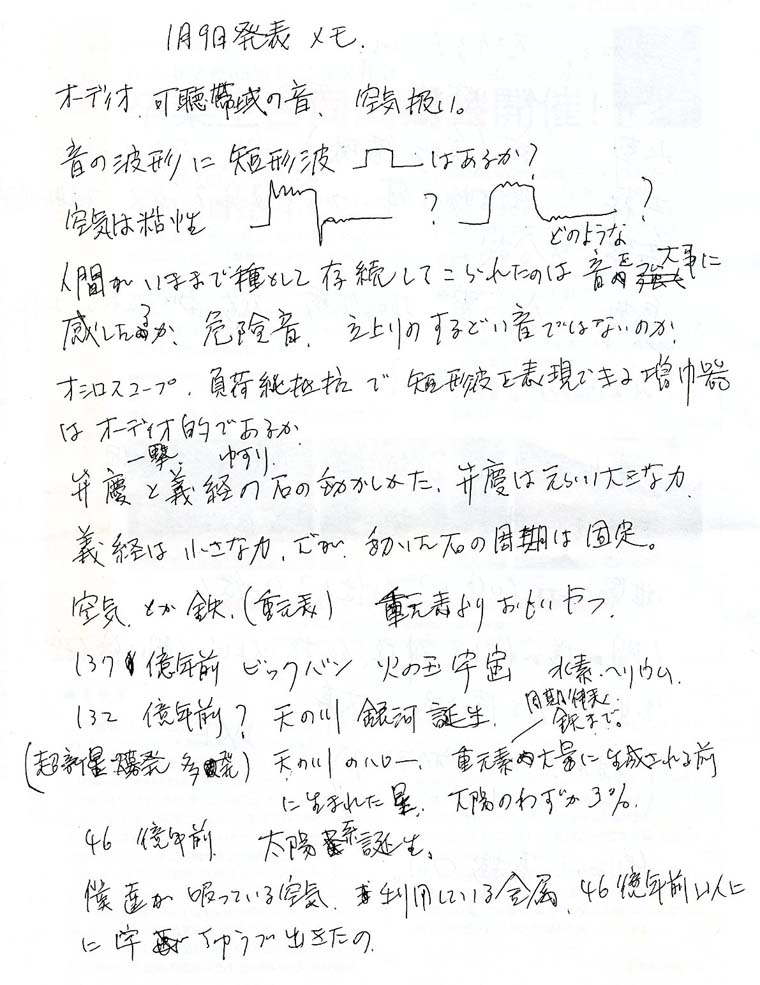 1月9日発表 メモ.
オーディオ、可聴帯域の音、空気扱い。
音の波形に矩形波 はあるか?
空気は粘性 ? ?
どのような
人間がいままで種として存続してこられたのは音を大事に
感じたか、危険音、立上りのするどい音ではないのか.
オシロスコープ、負荷純抵抗で矩形波を表現できる増巾器
はオーディオ的であるか.
一撃. ゆすり.
弁慶と義経の石の動かしかた、弁慶はえらい大きな力.
義経は小さな力、だが、動いた石の周期は固定。
空気とか鉄、(重元素) 重元素よりおもいやつ.
137億年前 ビックバン 火の玉宇宙 水素、ヘリウム.
132億年前? 天の川銀河誕生. 周期律表 鉄まで。
(超新星爆発多発) 天の川のハロー、重元素が大量に生成される前
に生まれた星、太陽のわずか3%.
46億年前 太陽系誕生。
僕達が吸っている空気、利用している金属、46億年前以
に宇 出きたの.